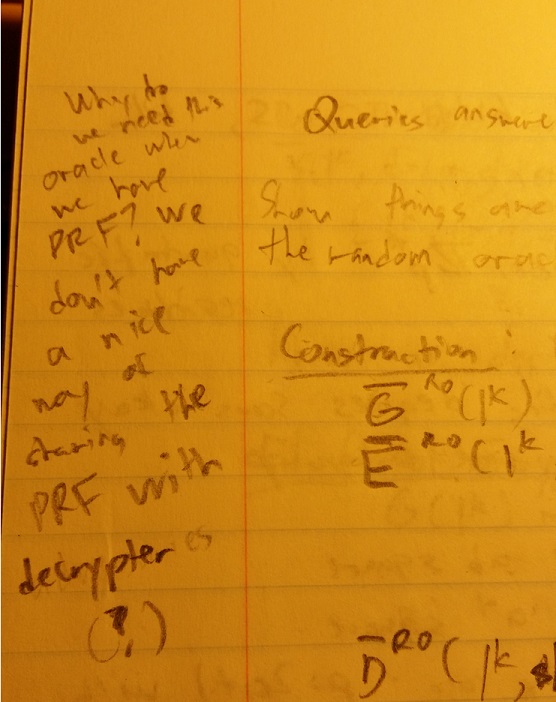 Why do
we need this
oracle when
we have
PRF? We
don't have
a nice
way of
sharing the
PRF with
decrypter es
(?)
Queries answere
Show things are
the random orac
Construction:
G̅ᴿᴼ(1ᵏ)
E̅ᴿᴼ(1ᵏ
D̅ᴿᴼ(1ᵏ,